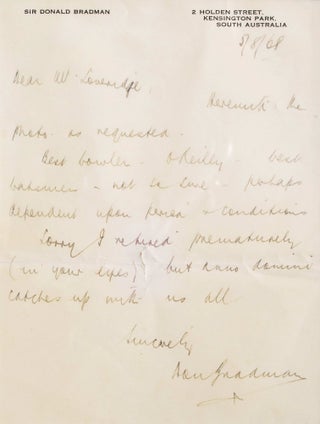 SIR DONALD BRADMAN
2 HOLDEN STREET,
KENSINGTON PARK,
SOUTH AUSTRALIA
5/8/68
Dear Mr Loveridge,
Herewith the
photo as requested.
Best bowler - O'Reilly - best
batsmen - not so sure - perhaps
dependent upon period & conditions
Sorry I retired prematurely
(in your eyes) but anno domini
catches up with us all
Sincerely
Don Bradman